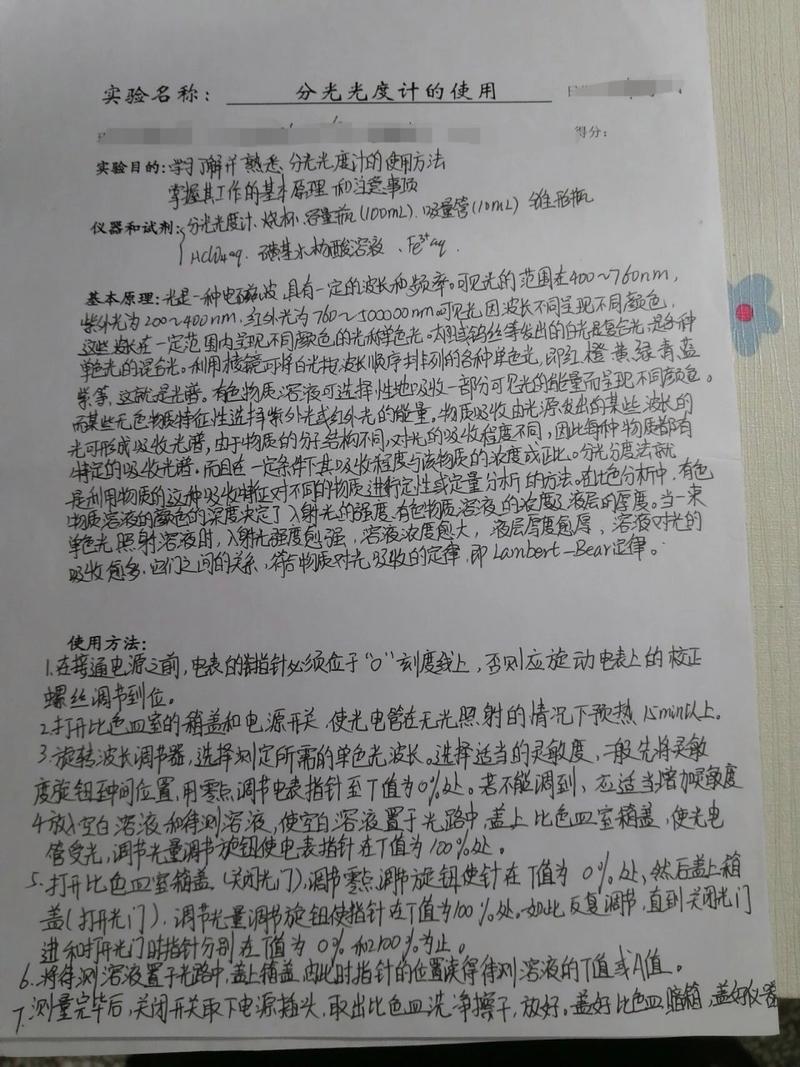 实验名称：分光光度计的使用
得分：
实验目的：学习了解并熟悉分光光度计的使用方法
掌握其工作的基本原理和注意事项
仪器和试剂：分光光度计、烧杯、容量瓶(100mL)、吸量管(10mL) 锥形瓶
HClO4aq、磺基水杨酸溶液、Fe³⁺aq.
基本原理：光是一种电磁波，具有一定的波长和频率。可见光的范围在400~760nm，
紫外光为200~400nm，红外光为760~500000nm.可见光因波长不同呈现不同颜色，
这些波长在一定范围内呈现不同颜色的光称单色光。太阳或钨丝等发出的白光是复合光，是各种
单色光的混合光。利用棱镜可将白光按波长顺序排列的各种单色光，即红橙黄绿青蓝
紫等，这就是光谱。有色物质溶液可选择性地吸收一部分可见光的能量而呈现不同颜色。
而某些无色物质特征性选择紫外光或红外光的能量。物质吸收由光源发出的某些波长的
光可形成吸收光谱，由于物质的分子结构不同，对光的吸收程度不同，因此每种物质都有
特定的吸收光谱。而且在一定条件下其吸收程度与该物质的浓度成正比。分光分度法就
是利用物质的这种吸收特征对不同的物质进行定性或定量分析的方法。在比色分析中，有色
物质溶液的颜色的深度决定了入射光的强度、有色物质溶液的浓度及液层的厚度。当一束
单色光照射溶液时，入射光强度愈强，溶液浓度愈大，液层厚度愈厚，溶液对光的
吸收愈多，它们之间的关系，符合物质对光吸收的定律，即Lambert-Bear定律。
使用方法：
1.在接通电源之前，电表的指针必须位于“0”刻度线上，否则应旋动电表上的校正
螺丝调节到位。
2.打开比色皿室的箱盖和电源开关，使光电管在无光照射的情况下预热15min以上。
3.旋转波长调节器，选择测定所需的单色光波长。选择适当的灵敏度，一般先将灵敏
度旋钮至中间位置，用零点调节电表指针至T值为0%处。若不能调到，应适当增加灵敏度
4.放入空白溶液和待测溶液，使空白溶液置于光路中，盖上比色皿室箱盖，使光电
管受光，调节光量调节旋钮使电表指针在T值为100%处。
5.打开比色皿室箱盖（关闭光门），调节零点调节旋钮使针在T值为0%处，然后盖上箱
盖（打开光门），调节光量调节旋钮使指针在T值为100%处。如此反复调节，直到关闭光门
进和打开光门时指针分别在T值为0%和100%为止。
6.将待测溶液置于光路中，盖上箱盖，由此时指针的位置读得待测溶液的T值或A值。
7.测量完毕后，关闭开关取下电源插头，取出比色皿洗净擦干，放好。盖好比色皿暗箱，盖好仪器